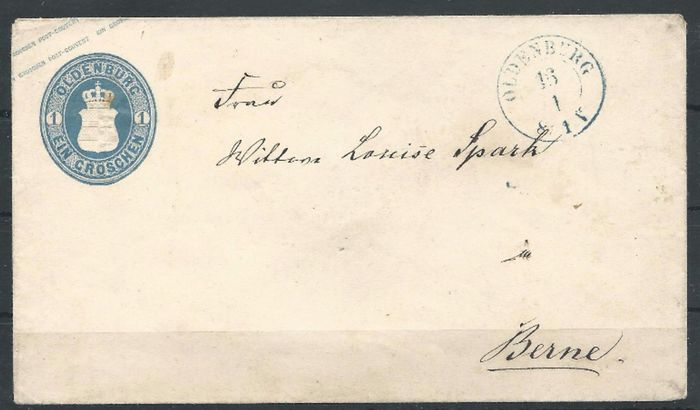 GROSCHEN POST-COUVERT EIN GROSCHEN
GROSCHEN POST-COUVERT EIN GROS
OLDENBURG
1 1
EIN GROSCHEN
OLDENBURG
13
1
Frau
Wittwe Louise Spark
in
Berne.